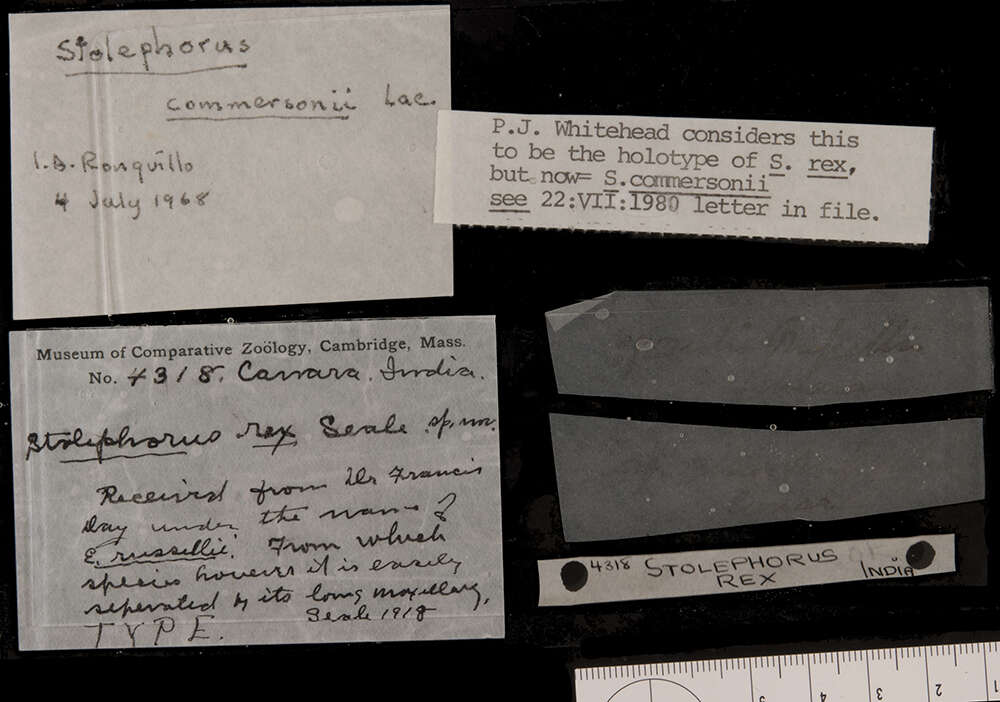 Stolephorus
commersonii Lac.
I.A. Ronquillo
4 July 1968
P.J. Whitehead considers this
to be the holotype of S. rex,
but now= S.commersonii
see 22:VII:1980 letter in file.
Museum of Comparative Zoölogy, Cambridge, Mass.
No. 4318. Canara. India.
Stolephorus rex Seale sp. nov.
Received from Dr Francis
Day under the name of
E. russellii. From which
species however it is easely
seperated by its long maxillary,
Seale 1918
TYPE.
4318 STOLEPHORUS
REX
INDIA
5 4 3 2 1